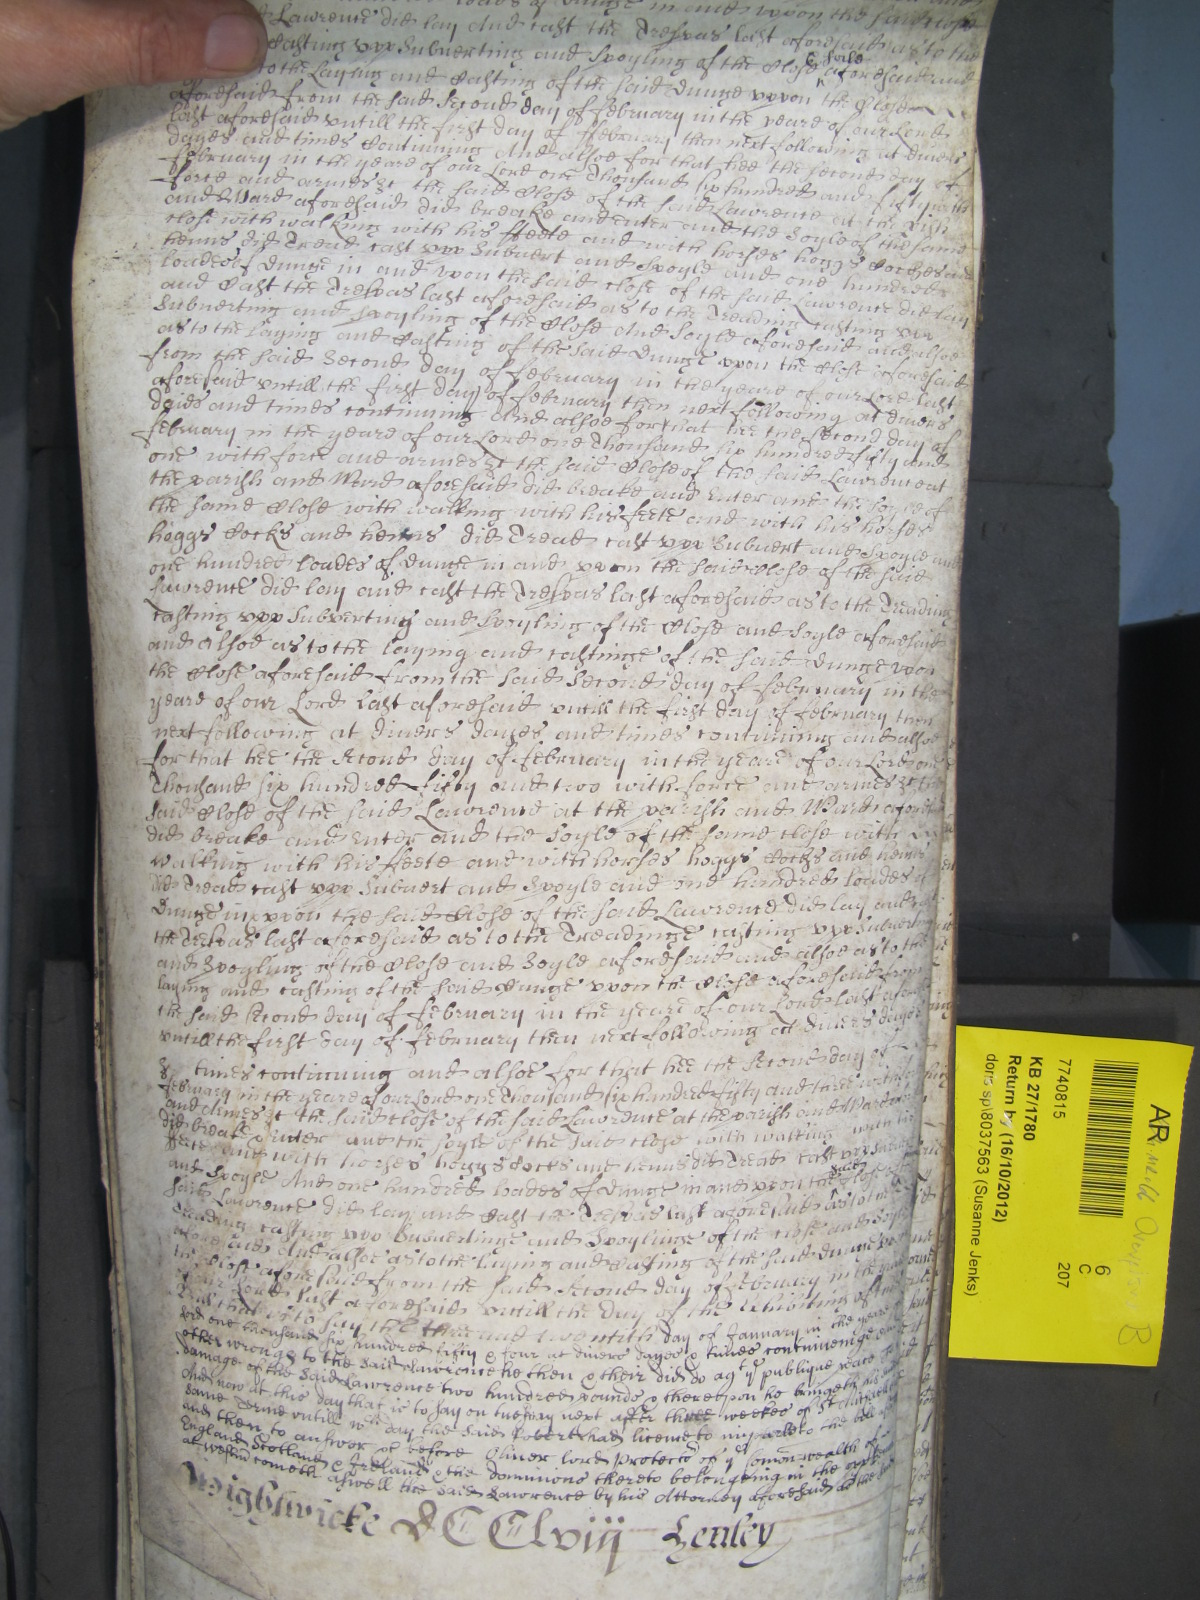 Lawrence did lay and cast the Trespas last aforesaid as to the
casting upp Subverting and Spoyling of the Close & soile aforesaid and
to the Laying and Casting of the said Dunge uppon the Close
aforesaid from the said second day of February in the yeare of our Lord
last aforesaid untill the first day of February then next following at divers
dayes and times Continuing And alsoe for that hee the second day of
February in the yeare of our Lord one Thousand six hundred and fifty with
force and armes &c the said Close of the said Lawrence at the parish
and Ward aforesaid did breake and enter and the Soyle of the same
close with walking with his feete and with horses hoggs Cockes and
henns did Tread cast upp Subvert and Spoyle and one hundred
loades of Dunge in and upon the said close of the said Lawrence did lay
and Cast the Trespas last aforesaid as to the Treading casting upp
Subverting and Spoyling of the Close and Soyle aforesaid and alsoe
as to the Laying and Casting of the said Dunge upon the Close aforesaid
from the said Second day of February in the yeare of our Lord last
aforesaid untill the first day of February then next following at divers
daies and times continuing And alsoe for that hee the second day of
February in the yeare of our Lord one Thousand six hundred fifty and
one with force and armes &c the said Close of the said Lawrence at
the parish and Ward aforesaid did breake and enter and the soyle of
the same Close with walking with his feete and with his horses
hoggs Cocks and henns did Tread cast upp Subvert and Spoyle and
one hundred loades of dunge in and upon the said Close of the said
Lawrence did lay and cast the Trespas last aforesaid as to the Treading
casting upp Subverting and Spoyling of the Close and Soyle aforesaid
and alsoe as to the laying and castinge of the said Dunge upon
the Close aforesaid from the said second day of February in the
yeare of our Lord last aforesaid untill the first day of February then
next following at divers dayes and times continuing and alsoe
for that hee the second day of February in the yeare of our Lord one
Thousand six hundred fifty and two with force and armes &c the
said Close of the said Lawrence at the parish and Ward aforesaid
did breake and enter and the soyle of the same close with
walking with his feete and with horses hoggs Cocks and henns
did Tread cast upp Subvert and Spoyle and one hundred loades of
Dunge in upon the said Close of the said Lawrence did lay and
the Trespas last aforesaid as to the Treadinge casting upp Subverting
and Spoyling of the Close and Soyle aforesaid and alsoe as to the
laying and casting of the said Dunge upon the Close aforesaid from
the said second day of February in the yeare of our Lord last aforesaid
untill the first day of February then next following at divers dayes
& times continuing and alsoe for that hee the second day of
February in the yeare of our Lord one Thousand six hundred fifty and three with force
and armes &c the said close of the said Lawrence at the parish and Ward
did breake & enter and the soyle of the said close with walking with his
feete and with horses hoggs Cocks and henns did Tread cast upp Subvert
and Spoyle And one hundred loades of Dunge in and upon the said close of
said Lawrence did lay and Cast the Trespas last aforesaid as to the
treading casting upp Subvertinge and Spoylinge of the close and soyle
aforesaid And alsoe as to the laying and casting of the said dunge upon
the Close aforesaid from the said second day of February in the yeare
of our Lord last aforesaid untill the day of the exhibiting of
Bill that is to say the three and twentith day of January in the yeare of
lord one thousand six hundred fifty & four at divers dayes & times continuing
other wrongs to the said Lawrence he then & there did do agt ye publique peace
damage of the said Lawrence two hundred pounds & thereupon he bringeth
And now at this day that is to say on tuesday next after three weekes of St Michaell
same Terme untill wch day the said Robert had licence to imparle to the bill
and then to answer &c before Oliver lord protector of ye Comonwealth of
England Scotland & Ireland & the dominions thereto belonging in the
at westm cometh aswell the said Lawrence by his Attorney aforesaid as the
Wightwicke DCClviij Henley
AR
7740815
6
C
207
KB 27/1780
Return by (16/10/2012)
doris sp\8037563 (Susanne Jenks)